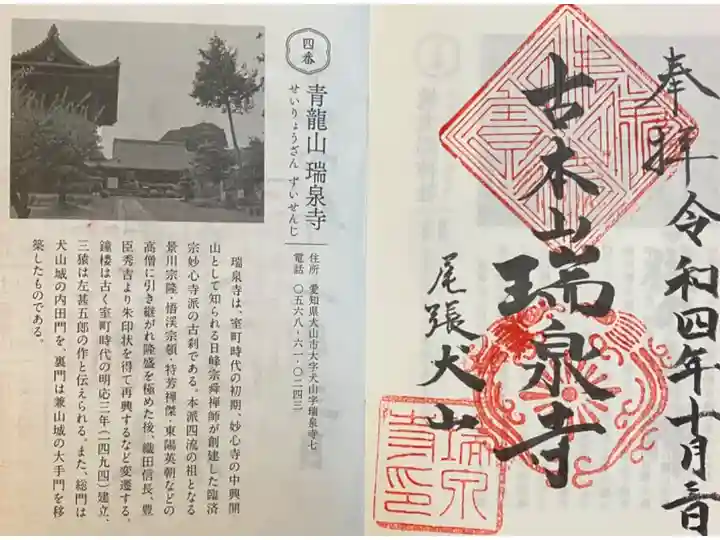 奉拝
令和四年十月
古木山
瑞泉寺
尾張犬山
瑞泉
寺印
四番
青龍山 瑞泉寺
せいりょうざん ずいせんじ
住所 愛知県犬山市大字犬山字瑞泉寺七
電話 〇五六八-六一-〇二四三
瑞泉寺は、室町時代の初期、妙心寺の中興開
山として知られる日峰宗舜禅師が創建した臨済
宗妙心寺派の古刹である。本派四流の祖となる
景川宗隆・悟渓宗頓・特芳禅傑・東陽英朝などの
高僧に引き継がれ隆盛を極めた後、織田信長、豊
臣秀吉より朱印状を得て再興するなど変遷する。
鐘楼は古く室町時代の明応三年(一四九四)建立、
三猿は左甚五郎の作と伝えられる。また、総門は
犬山城の内田門を、裏門は兼山城の大手門を移
築したものである。